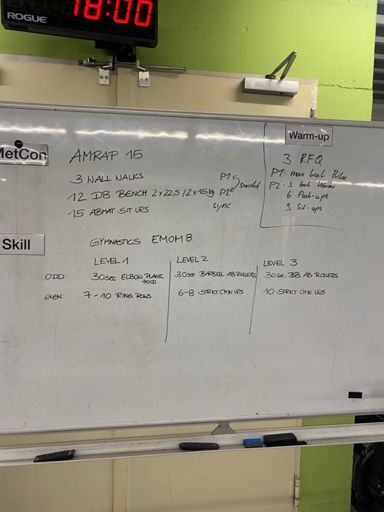 18:00
ROGUE
MetCon
AMRAP 15
3 WALL WALKS
12 DB BENCH 2x22,5/2x15kg
15 ABMAT SIT UPS
P1
P2
sync
Warm-up
3 RFQ
P1 max cal Bike
P2
6 Push-ups
9 Sit-ups
Skill
GYMNASTICS EMOM 8
LEVEL 1
LEVEL 2
LEVEL 3
ODD:
30 sec ELBOW PLANK HOLD
30 sec BARBELL AB ROLLERS
30 sec BB AB ROLLERS
EVEN:
7-10 RING ROWS
6-8 STRICT CHIN UPS
10 STRICT CHIN UPS